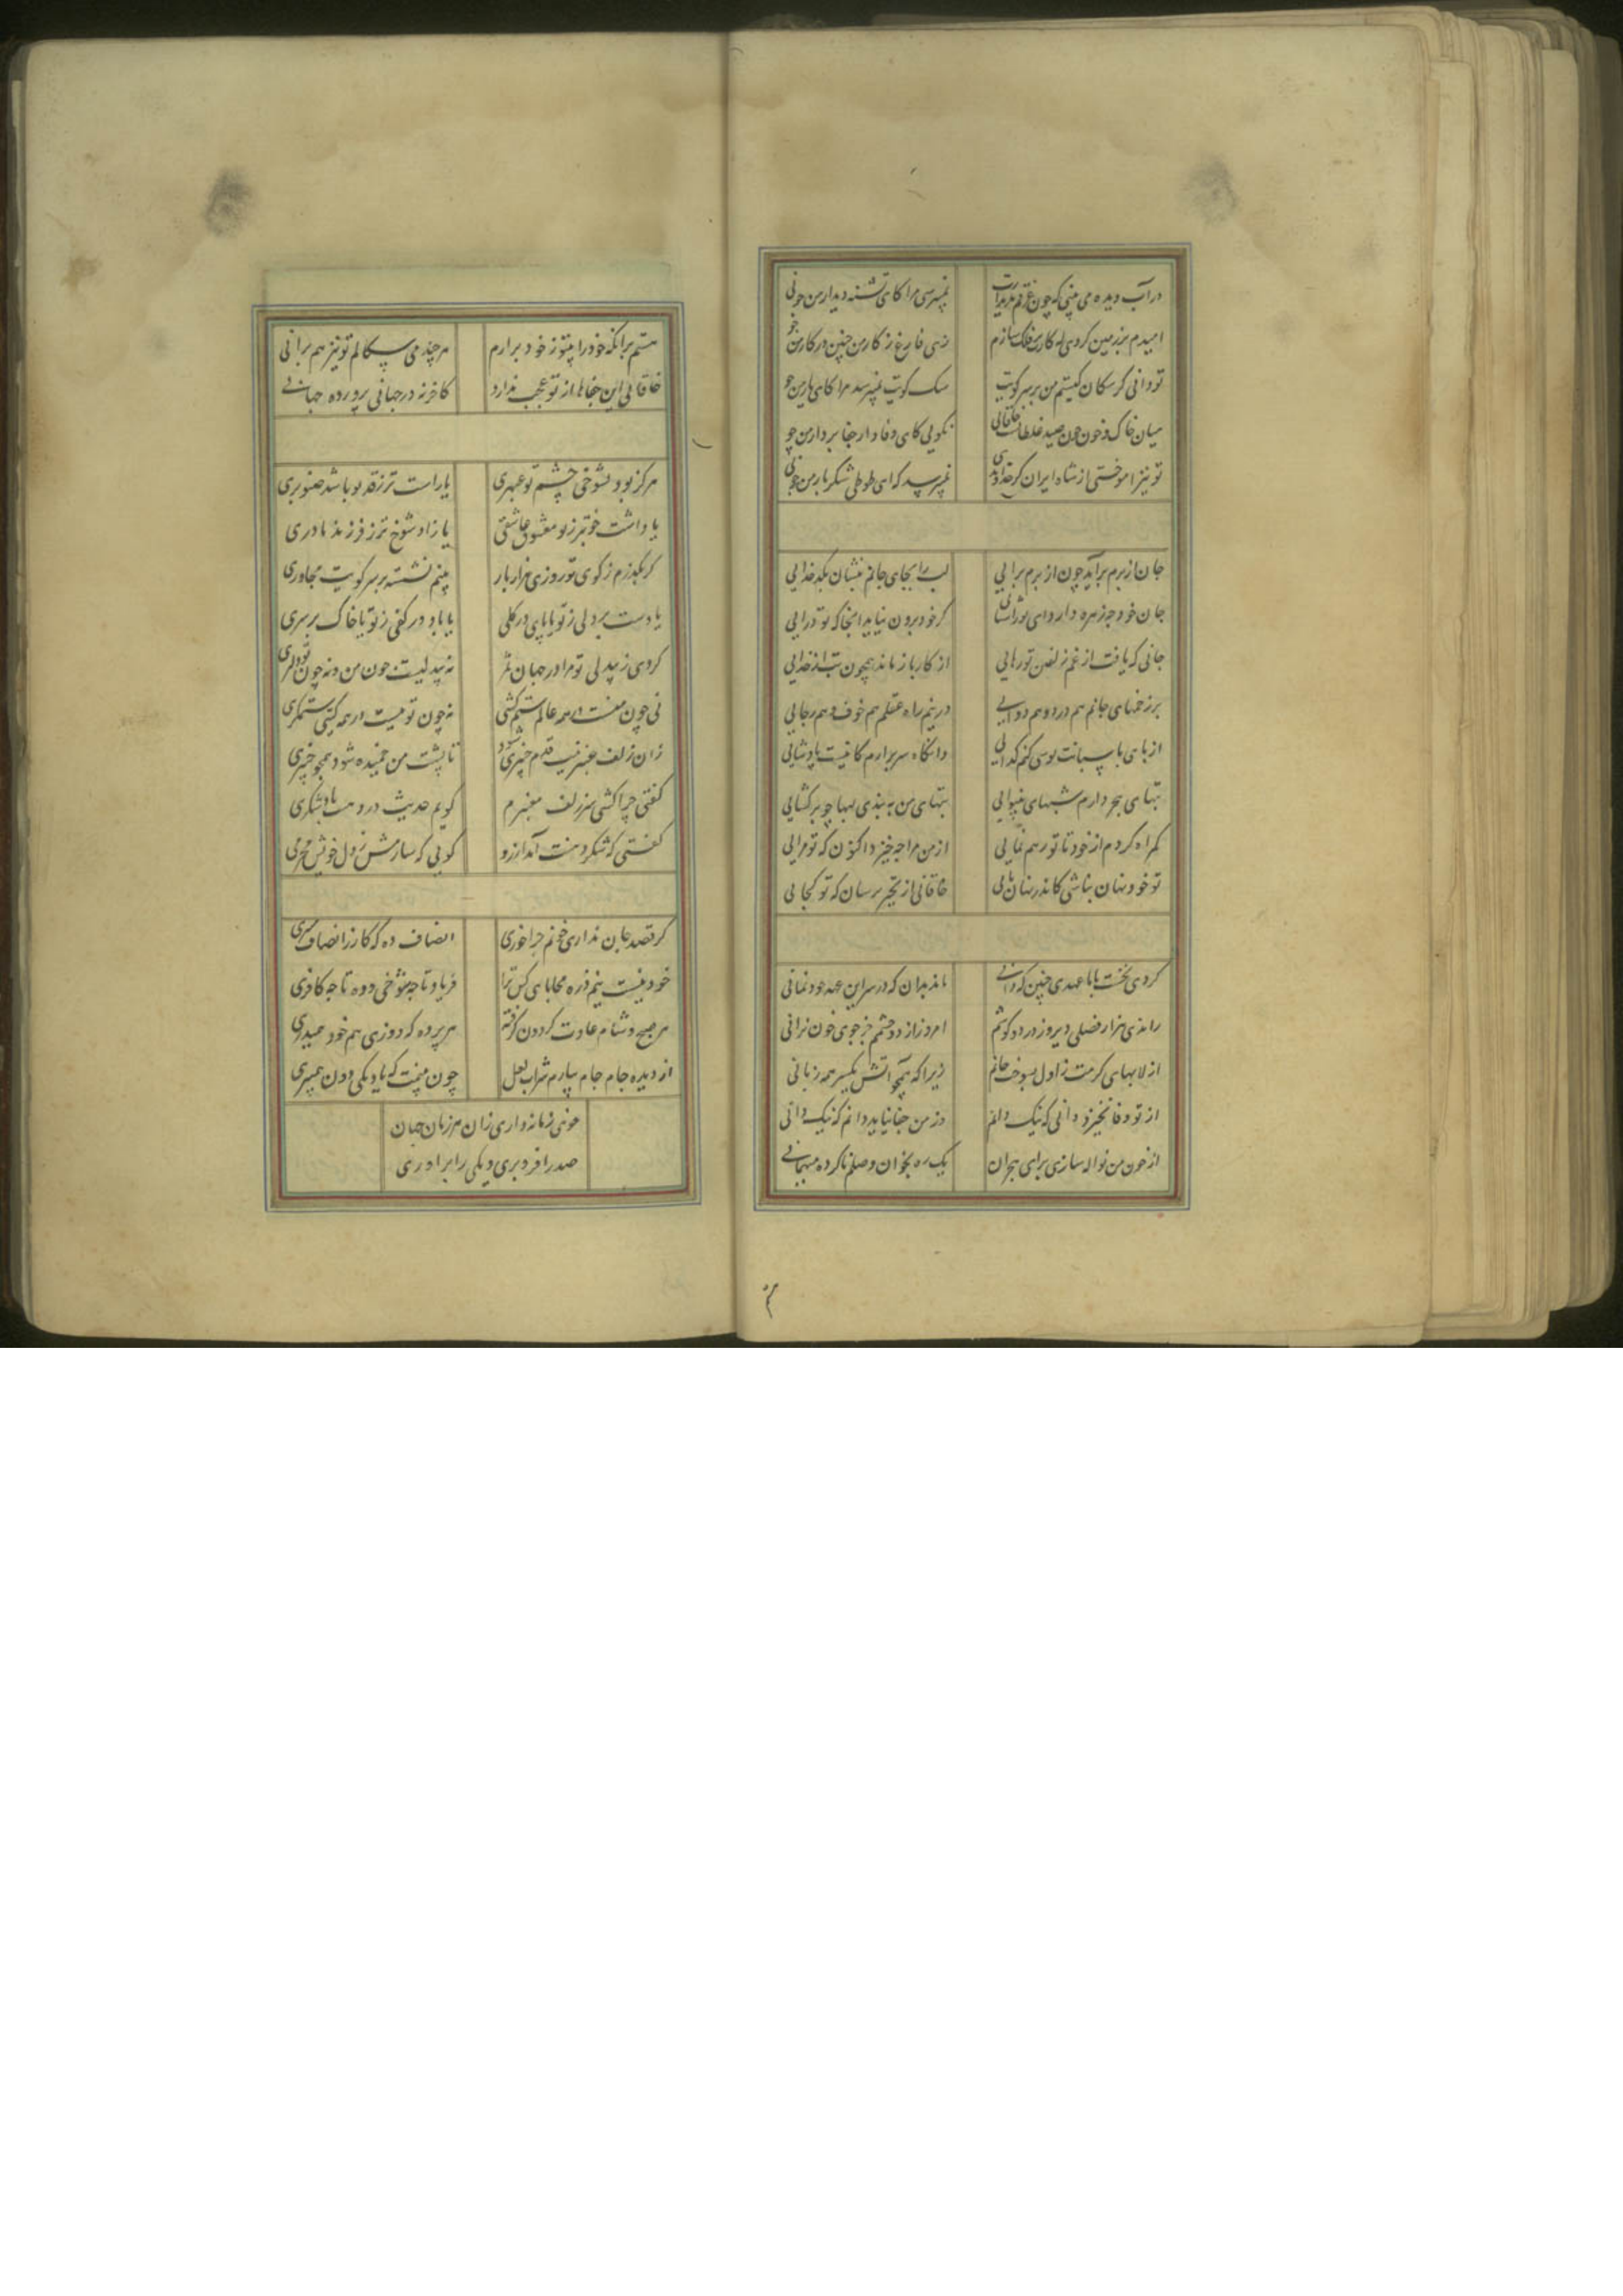 در آب دیده می بینی که چون غرقم بدیدارت
نمیپرسی مرا کای تشنه دیدار من چونی
امیدم بر زمین کردی که کارت بر فلک سازم
زهی فارغ ز کار من چنین در کار من چو
تو دانی کز سکان کیستم من بر سر کویت
سک کویت نمیپرسد مرا کای یار من چو
میان خاک و خون چون صید غلطانست خاقانی
نکویی کای وفادار جفابردار من چو
تو نیز آموختی از شاه ایران کز خداوندی
نمیپرسد که ای طوطی شکربار من چونی
جان از برم برآید چون از برم برآیی
لب را بجای جانم بنشان بکدخدایی
جان خود چه زهره دارد ای نور آشنایی
کز خود برون نیاید آنجا که تو درآیی
جانی که یافت از خم زلفین تو رهایی
از کار باز ماند همچون بت از خدایی
بر زخمهای جانم هم درد و هم دوایی
در نیم راه عقلم هم خوف و هم رجایی
از پای پاسبانت بوسی کنم کدایی
وانکاه سر برآرم کاینست پادشایی
تبهای هجر دارم شبهای بینوایی
تبهای من ببندی لبها چو برکشایی
کمراه کردم از خود تا تو رهم نمایی
از من مرا چه خیزد اکنون که تو مرایی
تو خود نهان نباشی کاندر نهان مایی
خاقانی از تحیر پرسان که تو کجایی
کردی نخست با ما عهدی چنین که دانی
ماند بدان که در سر این عهد خود نمانی
راندی هزار فضلی دیروز در دو کوشم
امروز از دو چشمم جز جوی خون نرانی
از لابهای کرمت ز اول بسوخت جانم
زیرا که همچو آتش یکسر همه زبانی
از تو وفا نخیزد دانی که نیک دانم
وز من جفا نیاید دانم که نیک دانی
از خون من نواله سازی برای هجران
یک ره بخوان وصلم ناکرده میهمانی
هستم برانکه خود را پیش تو ز خود برآرم
هر چند می سکالم تو نیز هم برآنی
خاقانی این جفاها از تو عجب ندارد
کافر نه در جهانی پرورده جهانی
هرکز بود بشوخی چشم تو عبهری
یا راست تر ز قد تو باشد صنوبری
یا داشت خوبتر ز تو معشوق عاشقی
یا زاد شوخ تر ز تو فرزند مادری
کر بکذرم ز کوی تو روزی هزار بار
بینم نشسته بر سر کویت مجاوری
یا دست بر دلی ز تو یا پای در کلی
یا باد در کفی ز تو یا خاک بر سری
کردی ز بیدلی تو مرا در جهان سمر
نه بیدلیست چون من و نه چون تو دلبری
نی چون منست در همه عالم ستم کشی
نه چون تو هست در همه کیتی ستمکری
زان زلف عنبرینت قدم چنبری شود
تا پشت من خمیده شود همچو چنبری
کفتی چرا کشی سر زلف معنبرم
کویم حدیث در دهنت باد شکری
کفتی که شکر دهنت آمد آرزو
کویی که سازمش ز دل خویش مجمری
کر قصد جان نداری خونم چرا خوری
انصاف ده که کار ز انصاف میبری
خود نیست نیم ذره محابای کس ترا
فریاد تا چه شوخی و وه تا چه کافری
هر صبح و شام عادت کردون کرفته
هر پرده که دوزی هم خود همیدری
از دیده جام جام ببارم شراب لعل
چون بینمت که باده بکی دون همیخوری
خوی زمانه داری زان هر زمان جهان
صد را فرو بری و یکی را برآوری